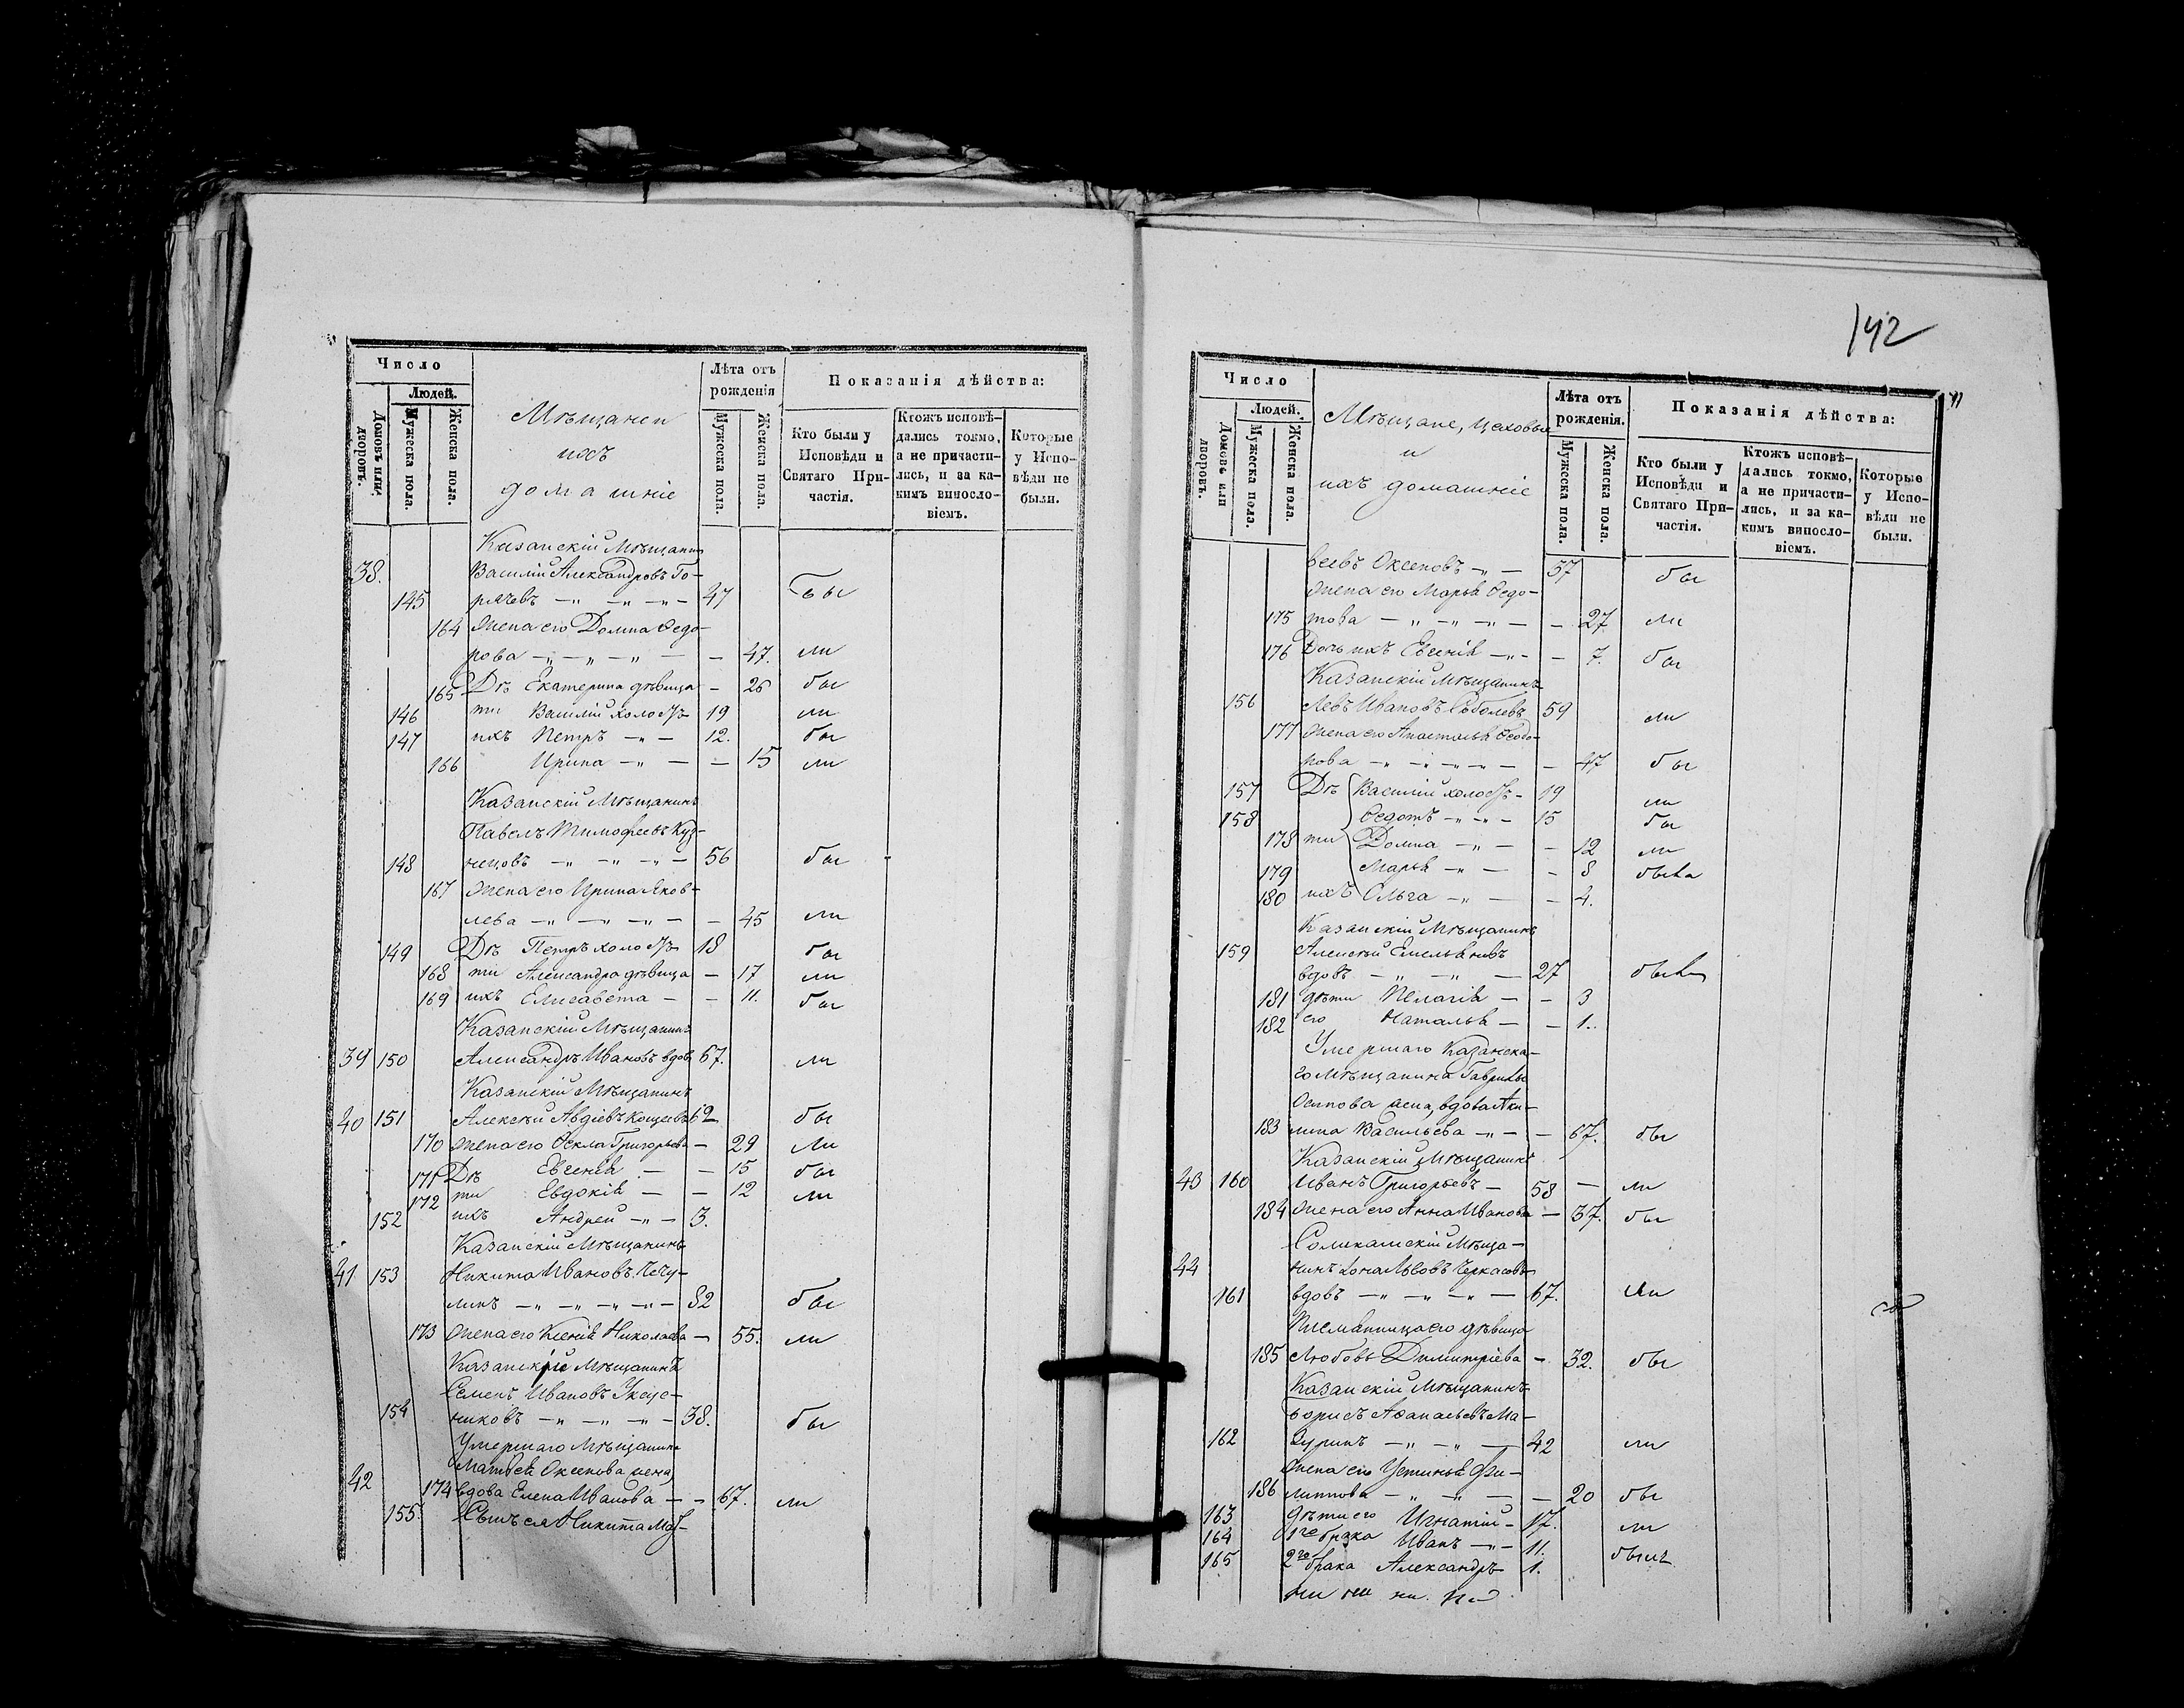 Число
Людей.
Домовъ или дворовъ.
Мужеска пола.
Женска пола.
Мѣщане и
ихъ
домашніе
Лѣта отъ рожденія
Мужеска пола.
Женска пола.
Показанія дѣйства:
Кто были у Исповѣди и Святаго Причастія.
Ктожъ исповѣдались токмо, а не причастились, и за какимъ винословіемъ.
Которые у Исповѣди не были.
Казанскій Мѣщанинъ
38. Василій Александровъ Го-
145 рячевъ 47 бы
164 Жена его Домна Ѳедо-
рова — 47. ли
165 Дѣ Екатерина дѣвица — 26 бы
146 ти Василій холостъ 19 ли
147 ихъ Петръ 12. бы
166 Ирина — 15 ли
Казанскій Мѣщанинъ
Павелъ Тимофеевъ Куз-
148 нецовъ 56 бы
167 Жена его Ирина Яков-
лева — 45 ли
149 Дѣ Петръ холостъ 18 бы
168 ти Александра дѣвица — 17 ли
169 ихъ Елисавета — 11. бы
Казанскій Мѣщанинъ
39 150 Александръ Ивановъ вдов 67. ли
Казанскій Мѣщанинъ
40 151 Алексѣй Авдіевъ Кощеевъ 62 бы
170 Жена его Ѳекла Григорьева — 29 ли
171 Дѣ Евгенія — 15 бы
172 ти Евдокія — 12 ли
152 ихъ Андрей 3.
Казанскій Мѣщанинъ
41 153 Никита Ивановъ Чечу-
линъ 82 бы
173 Жена его Ксенія Николаева — 55. ли
Казанскій Мѣщанинъ
Семенъ Ивановъ Уксус-
154 никовъ 38. бы
Умершаго Мѣщанина
42 Матвея Оксенова жена
174 вдова Елена Иванова — 67. ли
155. Сынъ ея Никита Мат-
142
Число
Людей.
Домовъ или дворовъ.
Мужеска пола.
Женска пола.
Мѣщане, цеховые
и
ихъ домашніе
Лѣта отъ рожденія.
Мужеска пола.
Женска пола.
Показанія дѣйства:
Кто были у Исповѣди и Святаго Причастія.
Ктожъ исповѣдались токмо, а не причастились, и за какимъ винословіемъ.
Которые у Исповѣди не были.
веевъ Оксеновъ 57 бы
Жена его Марья Ѳедо-
175 това — 27 ли
176 Дочь ихъ Евгенія — 7. бы
Казанскій Мѣщанинъ
156 Левъ Ивановъ Соболевъ 59 ли
177 Жена его Анастасья Ѳеодо-
рова — 47 бы
157 Дѣ Василій холостъ 19 ли
158 Ѳедотъ 15 бы
178 ти Домна — 12 ли
179 Марья — 8 была
180 ихъ Ольга — 4.
Казанскій Мѣщанинъ
159 Алексѣй Емельяновъ
вдовъ 27
181 дѣти Пелагія — 3
182 его Наталья — 1.
Умершаго Казанска-
го Мѣщанина Гаврилы
Осипова жена, вдова Аки-
183 лина Васильева — 67. бы
Казанскій Мѣщанинъ
43 160 Иванъ Григорьевъ 58 — ли
184 Жена его Анна Иванова — 37. бы
Соликамскій Мѣща-
44 нинъ Іона Львовъ Черкасовъ
161 вдовъ 67. ли
Племянница его дѣвица
185 Любовь Димитріева — 32. бы
Казанскій Мѣщанинъ
Борисъ Аѳанасьевъ Ма-
162 зуринъ 42 ли
Жена его Устинья Фи-
186 липпова — 20 бы
163 дѣти его Игнатій 17. ли
164 1го брака Иванъ 11.
165 2го брака Александръ 1.